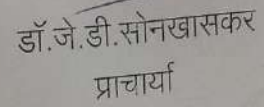 डॉ.जे.डी.सोनखासकर
प्राचार्या